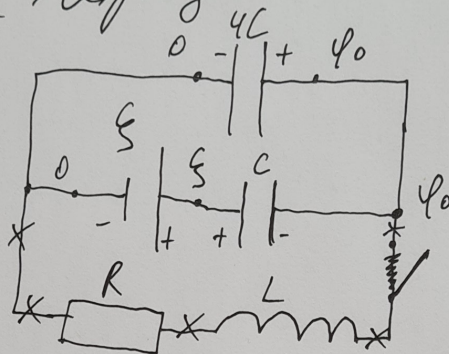 4C
0 - + φ₀
ξ
0 ξ C φ₀
- + + -
R L